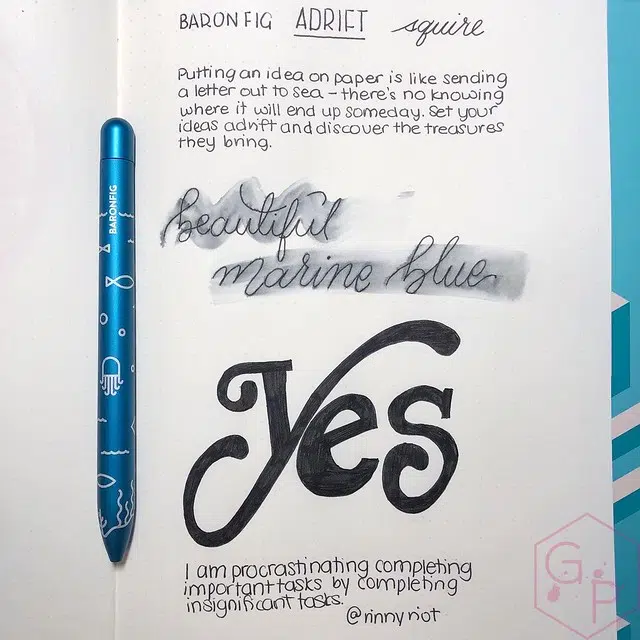 BARONFIG ADRIFT squire
Putting an idea on paper is like sending
a letter out to sea – there's no knowing
where it will end up someday. Set your
ideas adrift and discover the treasures
they bring.
BARONFIG
beautiful
marine blue
Yes
I am procrastinating completing
important tasks by completing
insignificant tasks.
@rinnyriot
G
P